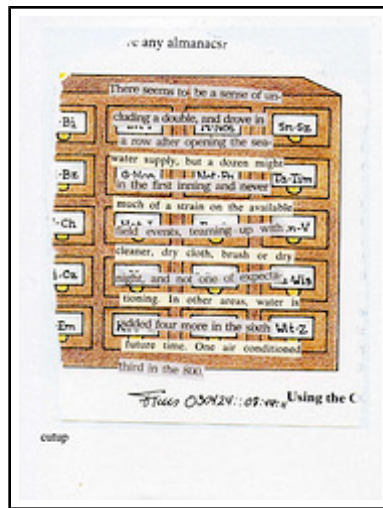 any almanacs
There seems to be a sense of un-
cluding a double, and drove in
a row after opening the sea-
water supply, but a dozen might
in the first inning and never
much of a strain on the available
field events, teaming up with
cleaner, dry cloth, brush or dry
night, and not one of expecta-
tioning. In other areas, water is
added four more in the sixth
future time. One air conditioned
third in the 800.
-Bi
Sn-Sz
-Bz
G-Mon
Not-Ph
Ta-Tim
-Ch
n-V
-Cz
-Wis
-Em
Wit-Z
Using the C
cutup